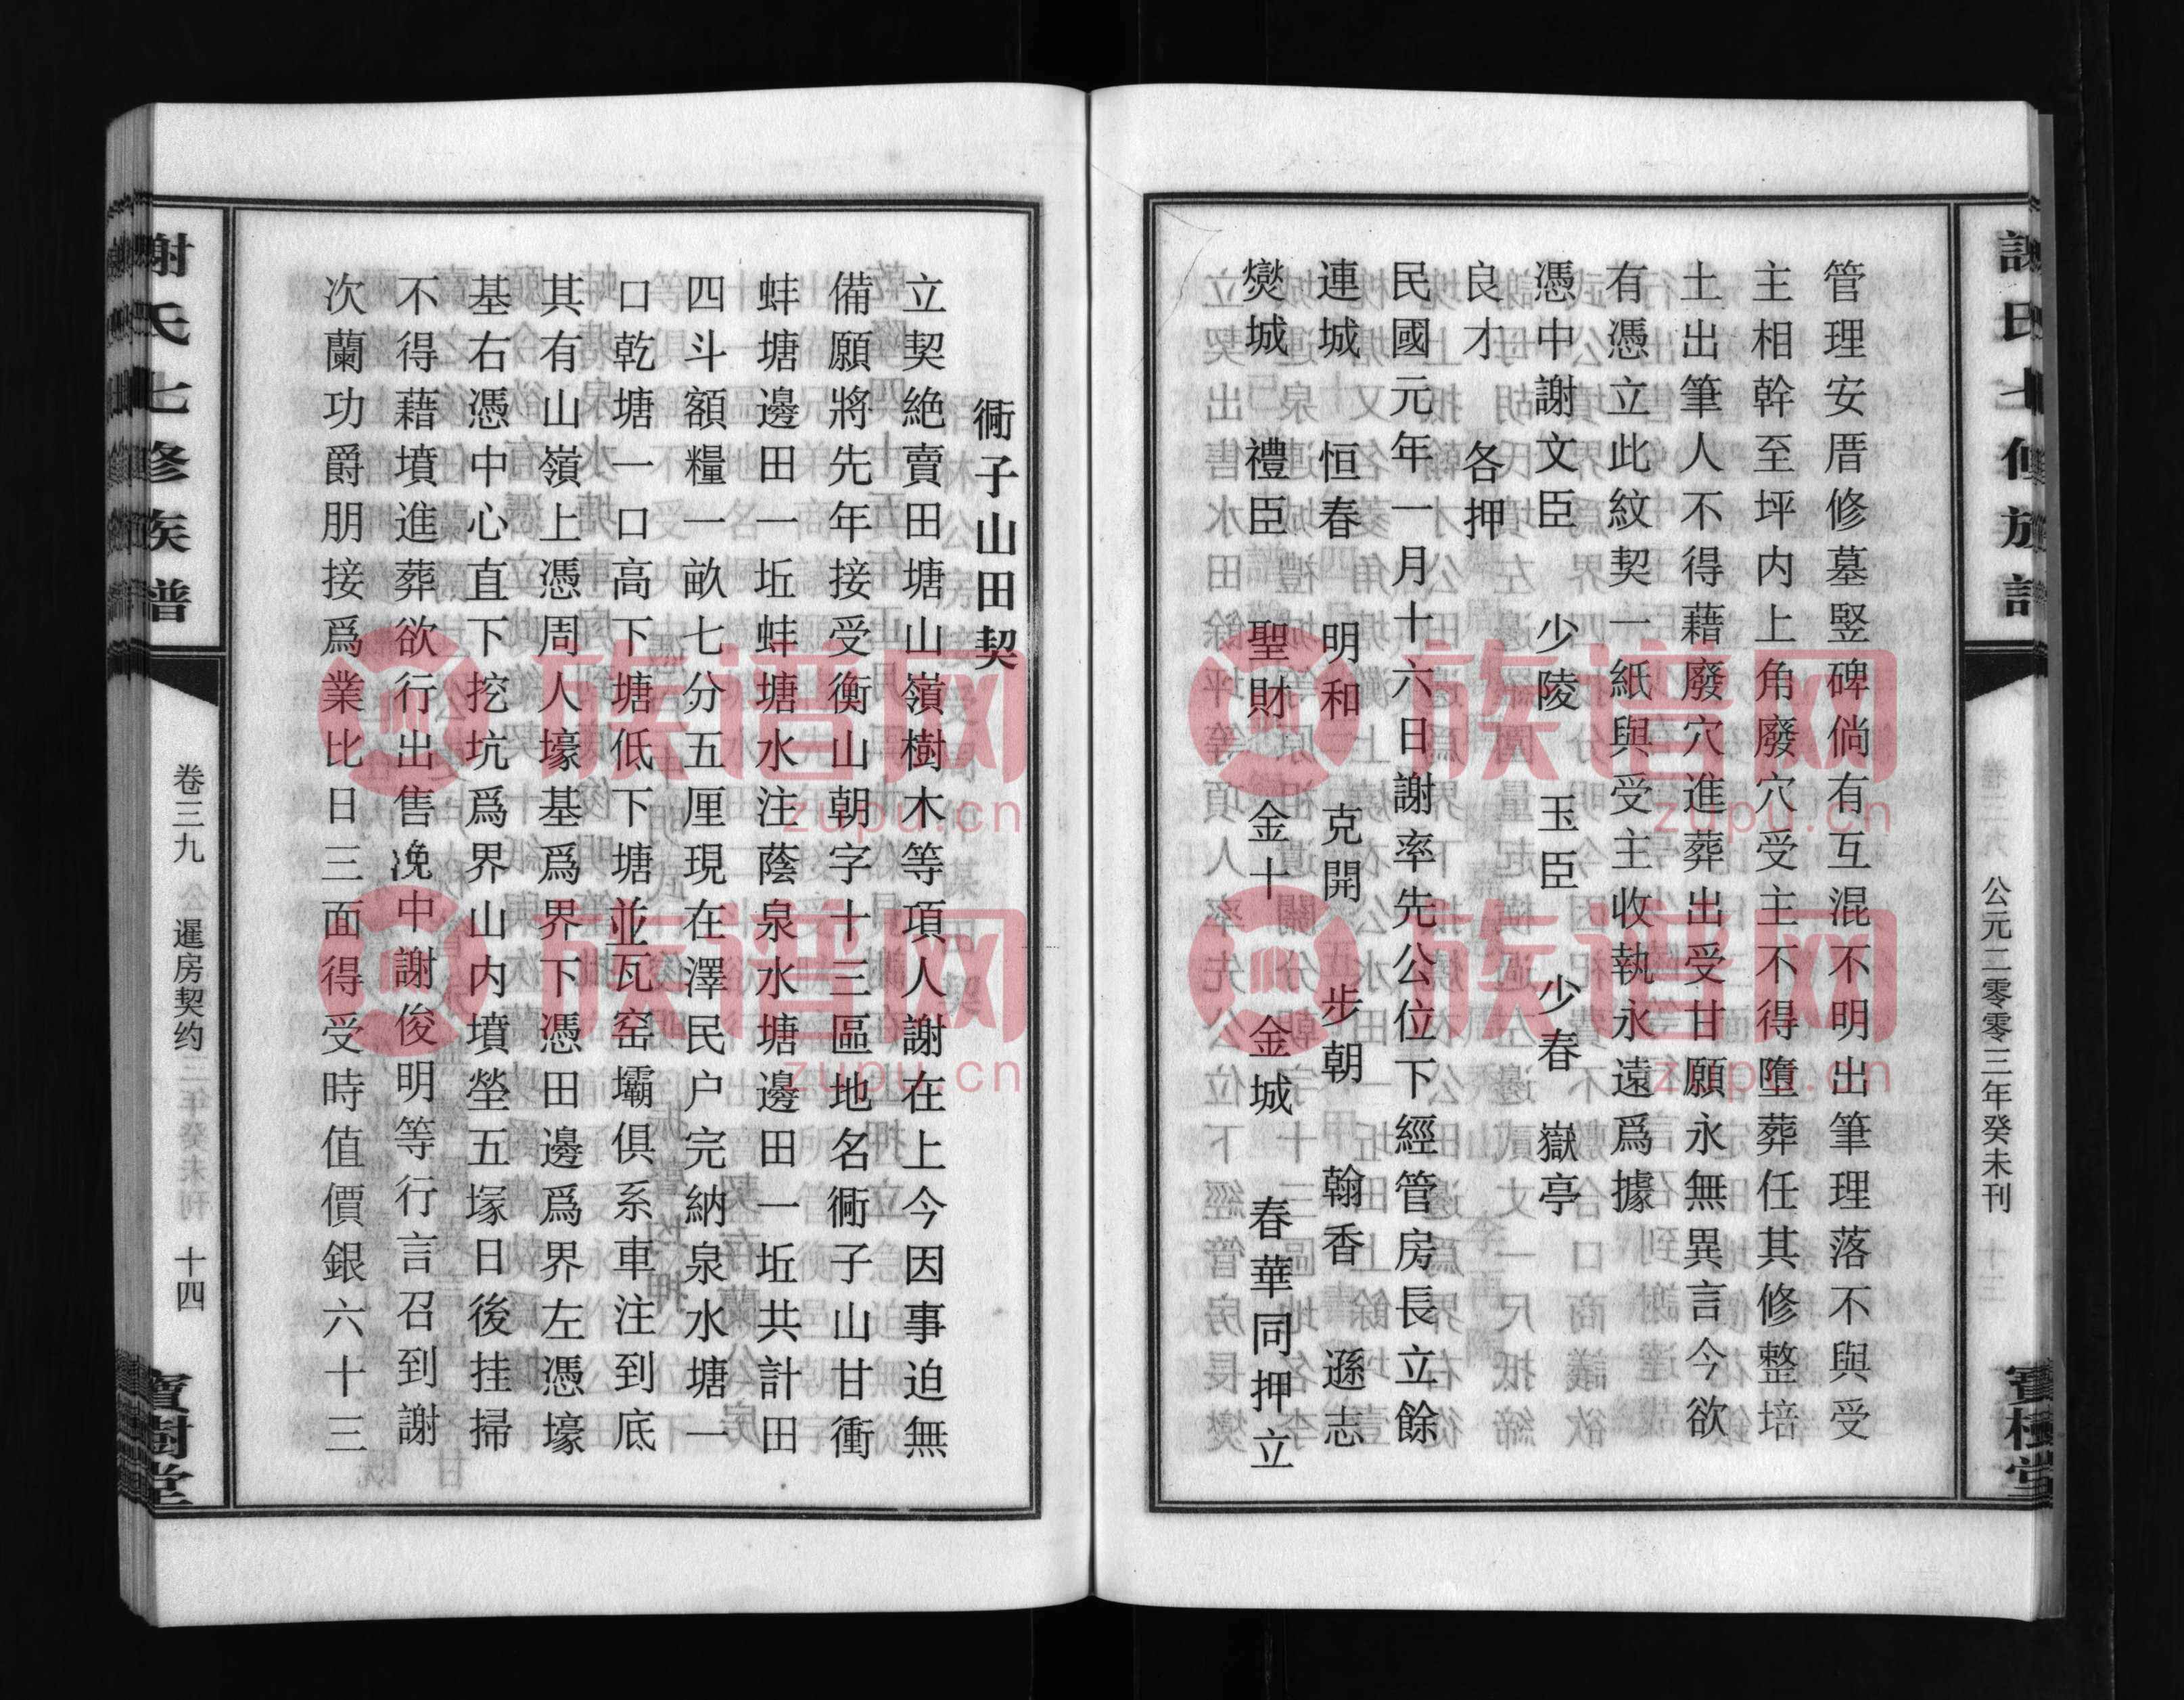 謝氏七修族譜
公元二零零三年癸未刊
寶樹堂
管理安厝修墓竪碑倘有互混不明出筆理落不與受
主相幹至坪内上角廢穴受主不得墮葬任其修整培
土出筆人不得藉廢穴進葬出受甘願永無異言今欲
有憑立此紋契一紙與受主收執永遠爲據
憑中謝文臣 少陵 玉臣 少春 嶽亭
良才 各押
民國元年一月十六日謝率先公位下經管房長立餘
連城 恒春 明和 克開 步朝 翰香 遜志
爕城 禮臣 聖財 金十 金城 春華同押立
衕子山田契
立契絶賣田塘山嶺樹木等項人謝在上今因事迫無
備願將先年接受衡山朝字十三區地名衕子山甘衝
蚌塘邊田一坵蚌塘水注蔭泉水塘邊田一坵共計田
四斗額糧一畝七分五厘現在澤民户完納泉水塘一
口乾塘一口高下塘低下塘並瓦窑壩俱系車注到底
其有山嶺上憑周人壕基爲界下憑田邊爲界左憑壕
基右憑中心直下挖坑爲界山内墳塋五塚日後挂掃
不得藉墳進葬欲行出售浼中謝俊明等行言召到謝
次蘭功爵朋接爲業比日三面得受時值價銀六十三
謝氏七修族譜
卷三九
暹房契约
十四
寶樹堂
族谱网
zupu.cn
族谱网
zupu.cn
族谱网
zupu.cn
族谱网
zupu.cn